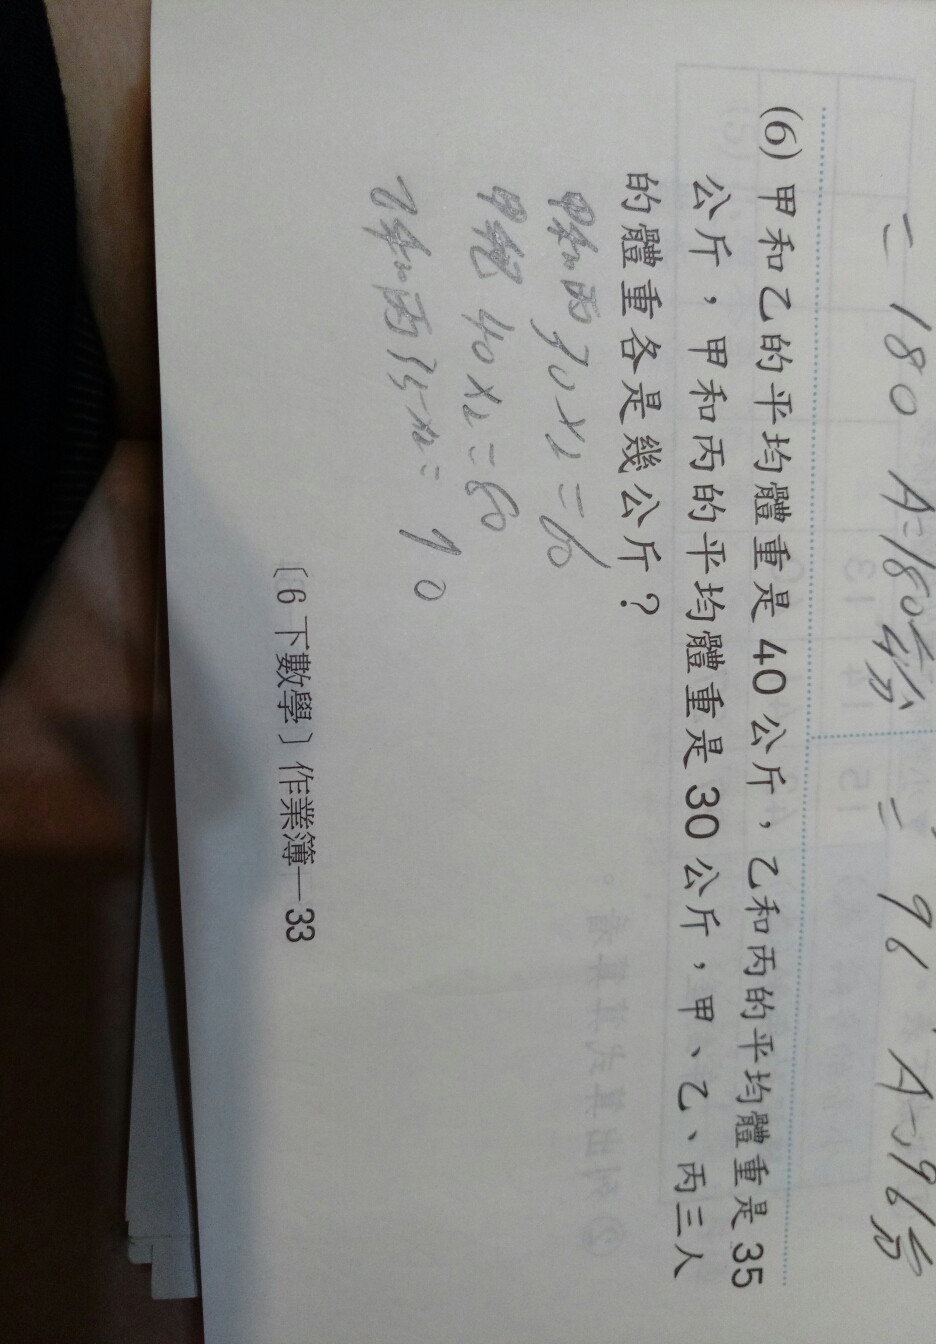 = 180 A=180分
= 96 A=96分
(6) 甲和乙的平均體重是 40 公斤，乙和丙的平均體重是 35
公斤，甲和丙的平均體重是 30 公斤，甲、乙、丙三人
的體重各是幾公斤？
甲和丙 30×2=60
甲乙 40×2=80
乙和丙 35×2= 70
〔6 下數學〕作業簿—33